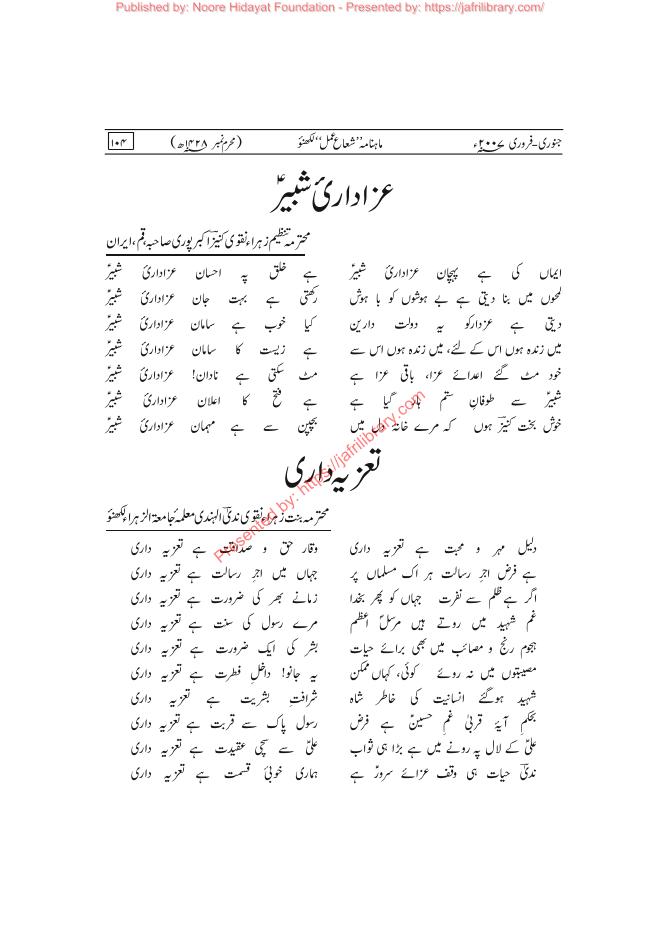 Published by: Noore Hidayat Foundation - Presented by: https://jafrilibrary.com/
جنوری۔فروری ۲۰۰۷ء ماہنامہ ’’شعاع عمل‘‘ لکھنؤ (محرم نمبر ۱۴۲۸ھ) ۱۰۴
عزاداریٔ شبیرؑ
محترمہ تنظیم زہراء نقوی کنیزؔ اکبرپوری صاحبہ قم، ایران
ایماں کی ہے پہچان عزاداریٔ شبیرؑ ہے خلق پہ احسان عزاداریٔ شبیرؑ
لمحوں میں بنا دیتی ہے بے ہوشوں کو با ہوش رکھتی ہے بہت جان عزاداریٔ شبیرؑ
دیتی ہے عزدارکو یہ دولت دارین کیا خوب ہے سامان عزاداریٔ شبیرؑ
میں زندہ ہوں اس کے لئے، میں زندہ ہوں اس سے ہے زیست کا سامان عزاداریٔ شبیرؑ
خود مٹ گئے اعدائے عزا، باقی عزا ہے مٹ سکتی ہے نادان! عزاداریٔ شبیرؑ
شبیرؑ سے طوفانِ ستم ہار گیا ہے ہے فتح کا اعلان عزاداریٔ شبیرؑ
خوش بخت کنیزؔ ہوں کہ مرے خانۂ دل میں بچپن سے ہے مہمان عزاداریٔ شبیرؑ
تعزیہ داری
محترمہ بنت زہراء نقوی ندیٰؔ الہندی معلمہ جامعۃ الزہراء لکھنؤ
دلیل مہر و محبت ہے تعزیہ داری وقار حق و صداقت ہے تعزیہ داری
ہے فرض اجرِ رسالت ہر اک مسلماں پر جہاں میں اجرِ رسالت ہے تعزیہ داری
اگر ہے ظلم سے نفرت جہاں کو پھر بخدا زمانے بھر کی ضرورت ہے تعزیہ داری
غم شہید میں روتے ہیں مرسلِ اعظم مرے رسول کی سنت ہے تعزیہ داری
ہجومِ رنج و مصائب میں بھی برائے حیات بشر کی ایک ضرورت ہے تعزیہ داری
مصیبتوں میں نہ روئے کوئی، کہاں ممکن یہ جانو! داخلِ فطرت ہے تعزیہ داری
شہید ہوگئے انسانیت کی خاطر شاہ شرافتِ بشریت ہے تعزیہ داری
بحکمِ آیۂ قربیٰ غمِ حسینؑ ہے فرض رسول پاک سے قربت ہے تعزیہ داری
علیؑ کے لال پہ رونے میں ہے بڑا ہی ثواب علیؑ سے سچی عقیدت ہے تعزیہ داری
ندیٰؔ حیات ہی وقف عزائے سرورؑ ہے ہماری خوبیٔ قسمت ہے تعزیہ داری
Presented by: https://jafrilibrary.com